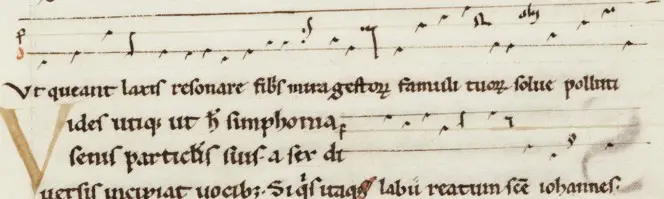 Vt queant laxis resonare fibris mira gestorum famuli tuorum solue polluti
Vides utique ut hec simphonia
senis particulis suis a sex di
uersis incipiat uocibus. Si quis itaque labii reatum sancte iohannes.